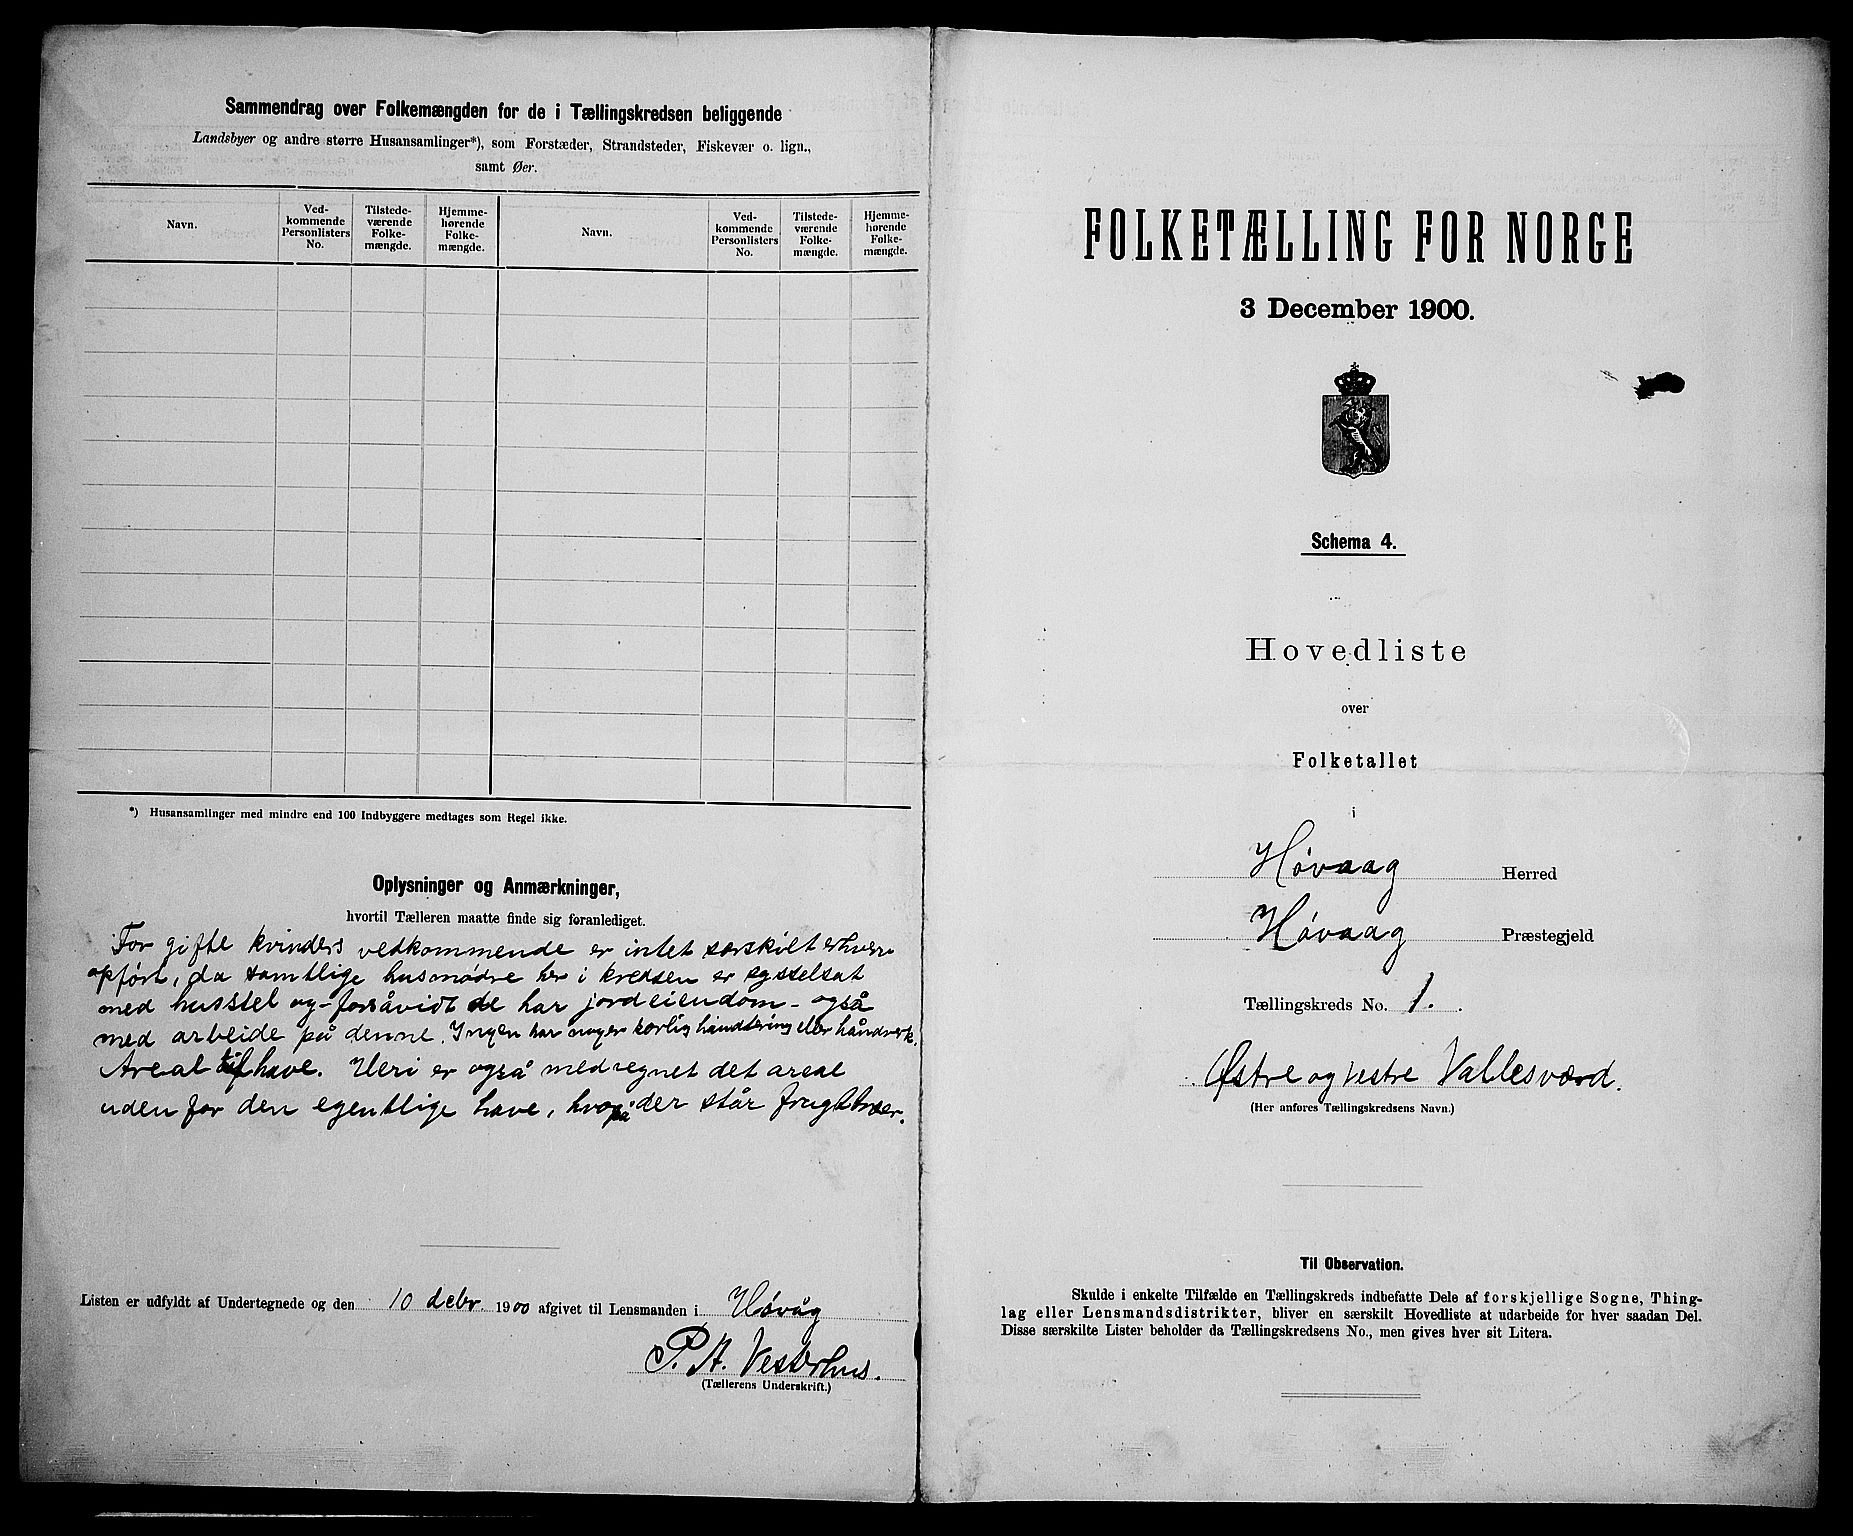 Sammendrag over Folkemængden for de i Tællingskredsen beliggende
Landsbyer og andre større Husansamlinger*), som Forstæder, Strandsteder, Fiskevær o. lign.,
samt Øer.
Navn.
Ved-
kommende
Personlisters
No.
Tilstede-
værende
Folke-
mængde.
Hjemme-
hørende
Folke-
mængde.
Navn.
Ved-
kommende
Personlisters
No.
Tilstede-
værende
Folke-
mængde.
Hjemme-
hørende
Folke-
mængde.
*) Husansamlinger med mindre end 100 Indbyggere medtages som Regel ikke.
Oplysninger og Anmærkninger,
hvortil Tælleren maatte finde sig foranlediget.
For gifte kvinders vedkommende er intet særskilt erhverv
opført, da samtlige husmødre her i kredsen er sysselsat
med husstel og – forsåvidt de har jordeiendom – også
med arbeide på denne. Ingen har nogen særlig håndtering eller håndverk.
Areal til have. Heri er også medregnet det areal
uden for den egentlige have, hvorpå der står frugttrær.
Listen er udfyldt af Undertegnede og den 10 debr. 1900 afgivet til Lensmanden i Høvåg
P. A. Vesterhus.
(Tællerens Underskrift.)
FOLKETÆLLING FOR NORGE
3 December 1900.
Schema 4.
Hovedliste
over
Folketallet
i
Høvaag Herred
Høvaag Præstegjeld
Tællingskreds No. 1.
Østre og vestre Vallesværd.
(Her anføres Tællingskredsens Navn.)
Til Observation.
Skulde i enkelte Tilfælde en Tællingskreds indbefatte Dele af forskjellige Sogne, Thing-
lag eller Lensmandsdistrikter, bliver en særskilt Hovedliste at udarbeide for hver saadan Del.
Disse særskilte Lister beholder da Tællingskredsens No., men gives hver sit Litera.